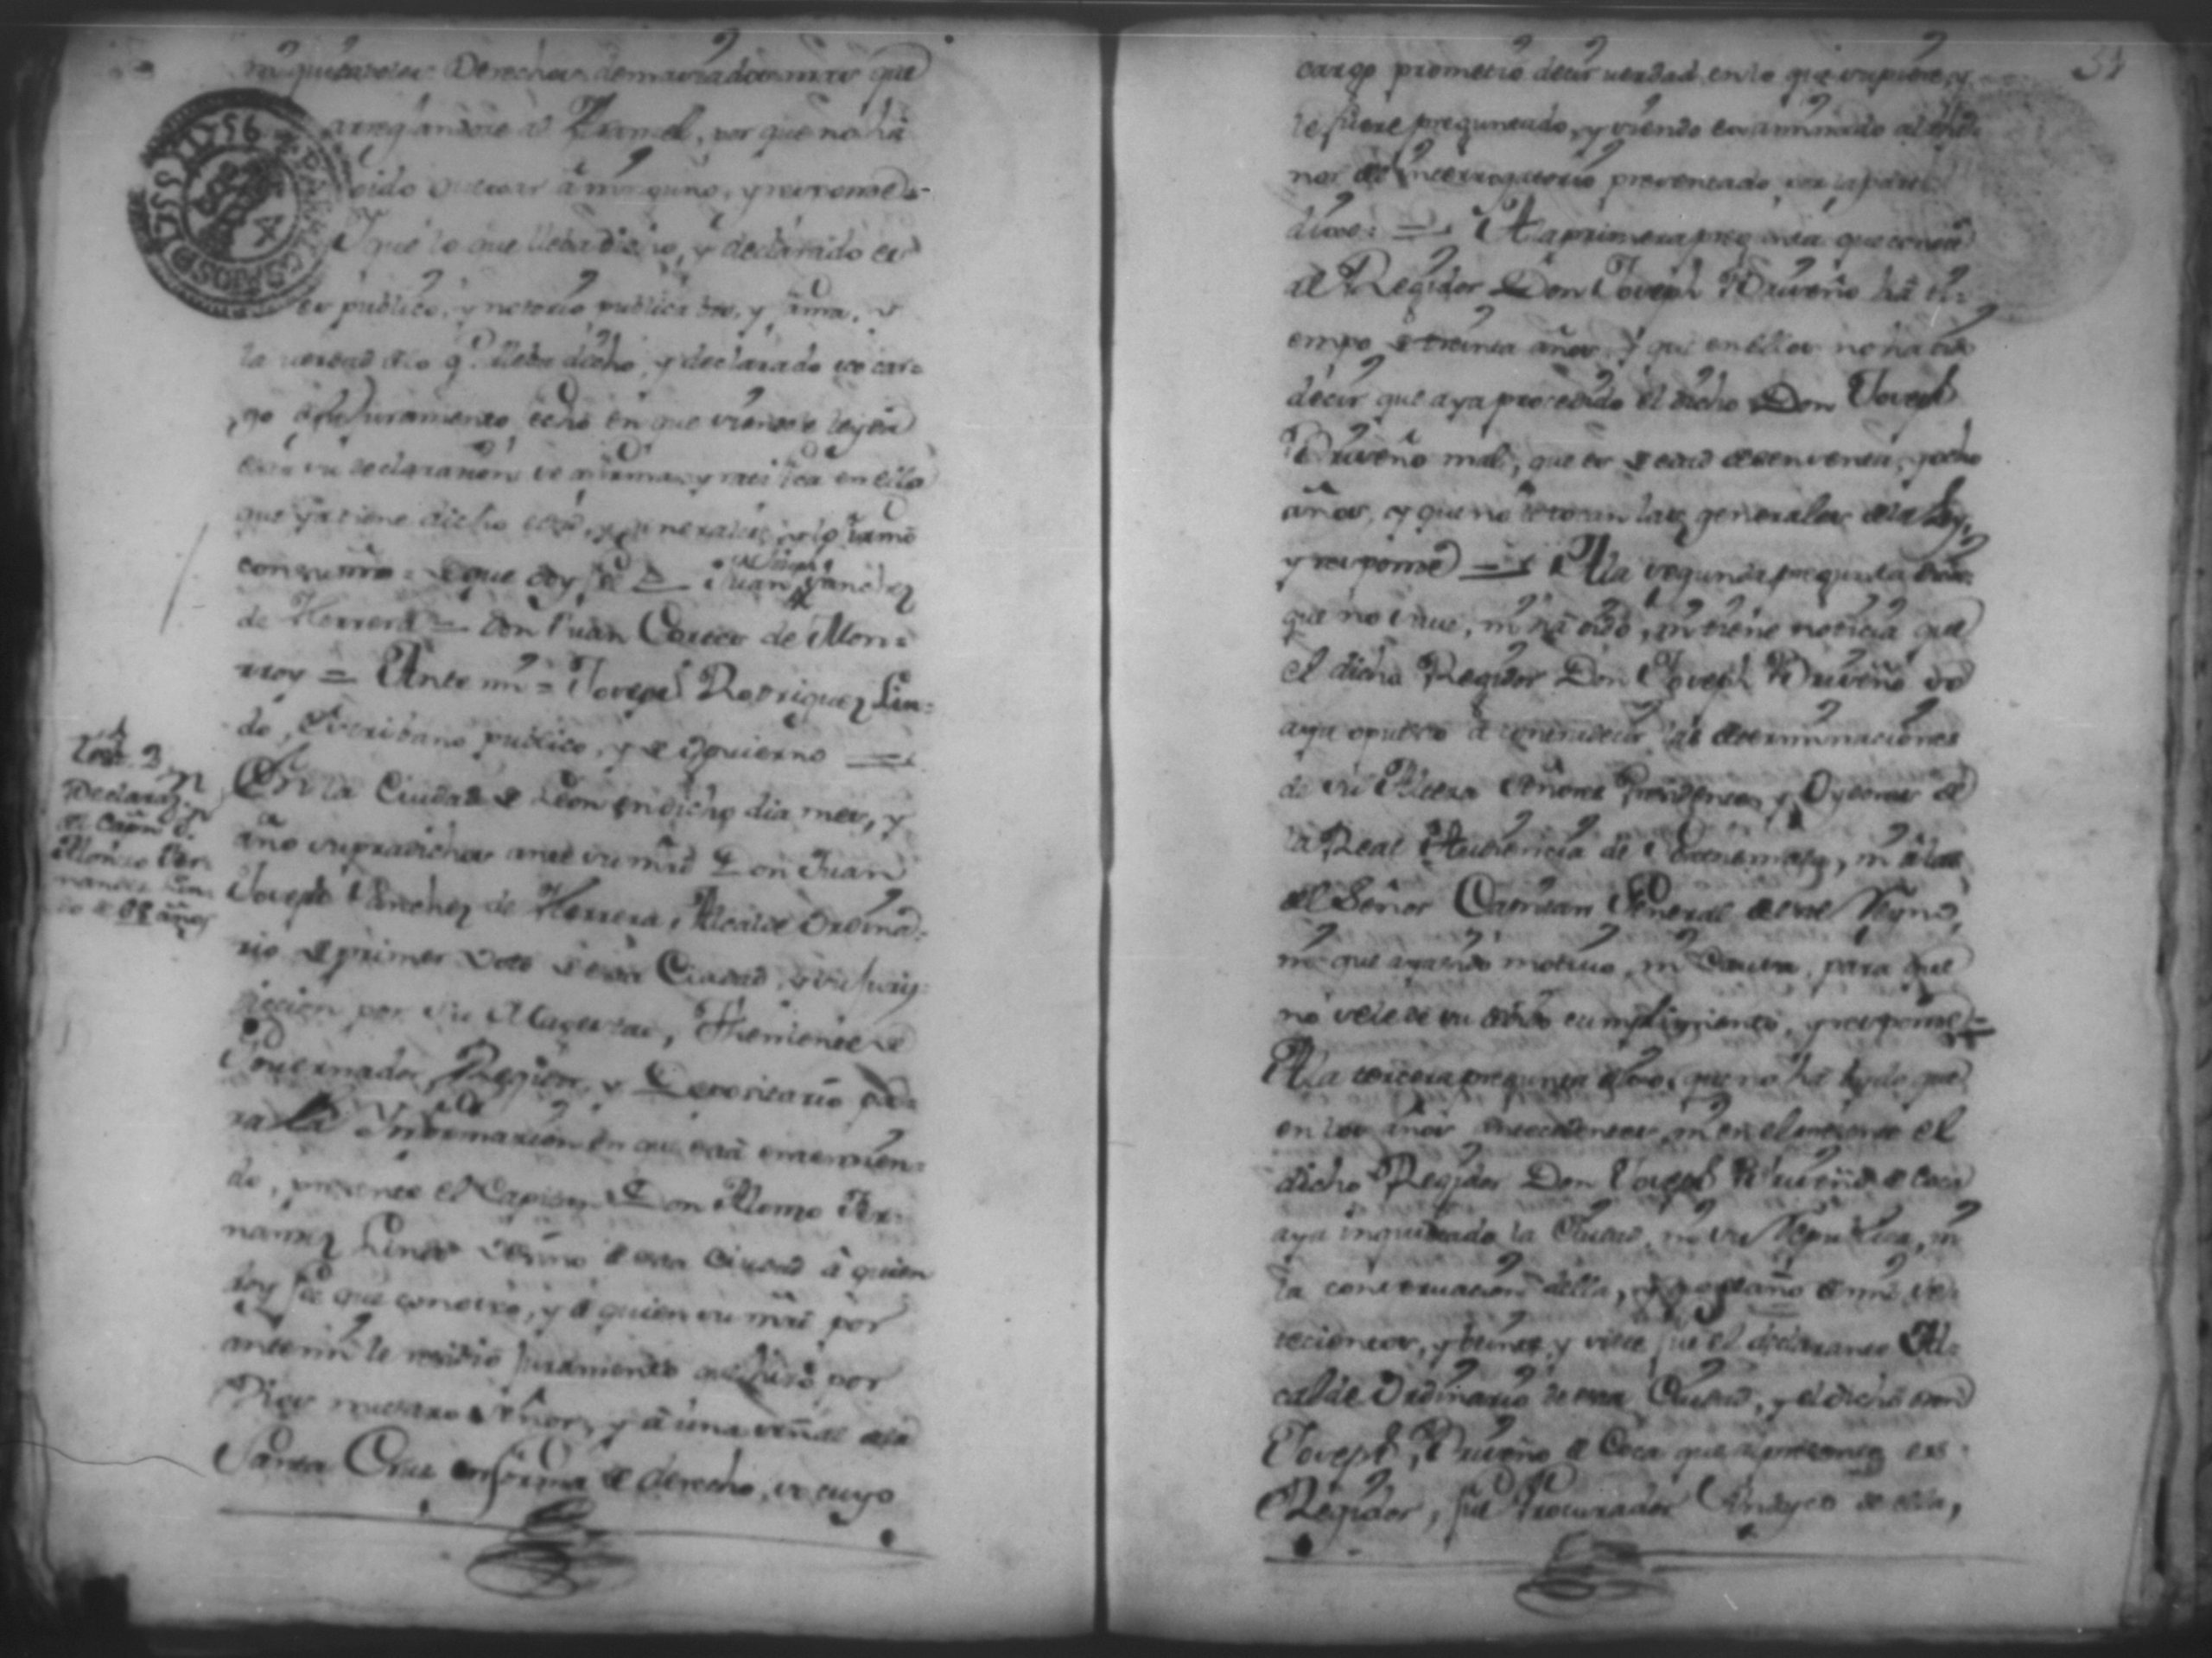 ni quitadoles Derechos demasiados mas que
arreglandose al Aranzel, por que no há
oido quexar â ninguno, y responde =
Y que lo que lleba dicho, y declarado es
es publico, y notorio publica vos, y fama, y
la verdad de lo q.e lleba dicho, y declarado so car=
go del Juramento fecho en que siendole leyda
esta su declarazion se afirma, y ratifica en ella
que ya tiene dicho edad, y generales, y lo firmô
con su mrd. = de que doy feé = Juan Joseph Sanchez
de Herrera = Don Juan de Mon=
rroy = Ante mi = Joseph Rodriguez Lin=
do, Escribano publico, y de Govierno =
En la Ciudad de Leon en dicho dia mes, y
año supradichos ante su mrd Don Juan
Joseph Sanchez de Herrera, Alcalde Ordina=
rio de primer Voto de esta Ciudad, y su Juris=
diccion por Su Magestad, Theniente de
Governador, Regidor, y Depositario pa=
ra la Informazion en que está entendien=
do, presente el Capitan Don Alonso Fer=
nandez Lindo Vezino de esta Ciudad â quien
doy feé que conozco, y de quien su mrd por
antemi le resivio Juramento que hizo por
Dios nuestro Señor, y â una señal de la
Santa Cruz en forma de derecho, so cuyo
Test. 3
Declaraz.n
del Capn D.
Alonso Fer=
nandez Lin=
do de 68 años
1756
cargo prometió decir verdad en lo que supiere, y
le fuere preguntado, y siendo examinado al the=
nor del Interrogatorio presentado por la parte
dixo: = A la primera pregunta que conoce
al Regidor Don Joseph Briseño há ti=
empo de treinta años, y que en ellos no há oido
decir que aya procedido el dicho Don Joseph
Briseño mal, que es de edad de sesenta, y ocho
años, y que no le tocan las generales de la Ley,
y responde = A la segunda pregunta dixo:
que no save, ni há oido, ni tiene noticia que
el dicho Regidor Don Joseph Briseño se
aya opuesto â contradecir las determinaciones
de Su Alteza Señores Presidentes, y Oydores de
la Real Audiencia de Goathemala, ni â las
del Señor Capitan General de este Reyno,
ni que aya sido motivo, ni Causa, para que
no se le de su devido cumplimiento, y responde =
A la tercera pregunta dixo: que no há oydo que
en los años antecedentes, ni en el presente el
dicho Regidor Don Joseph Briseño de Coca
aya inquietado la Ciudad, ni su Republica, ni
la conservacion della, y que el año de mil se=
tecientos, y veinte y siete fue el declarante Al=
calde Ordinario de esta Ciudad, y el dicho Don
Joseph Briseño de Coca que al presente es
Regidor, fue Procurador Sindyco de ella,